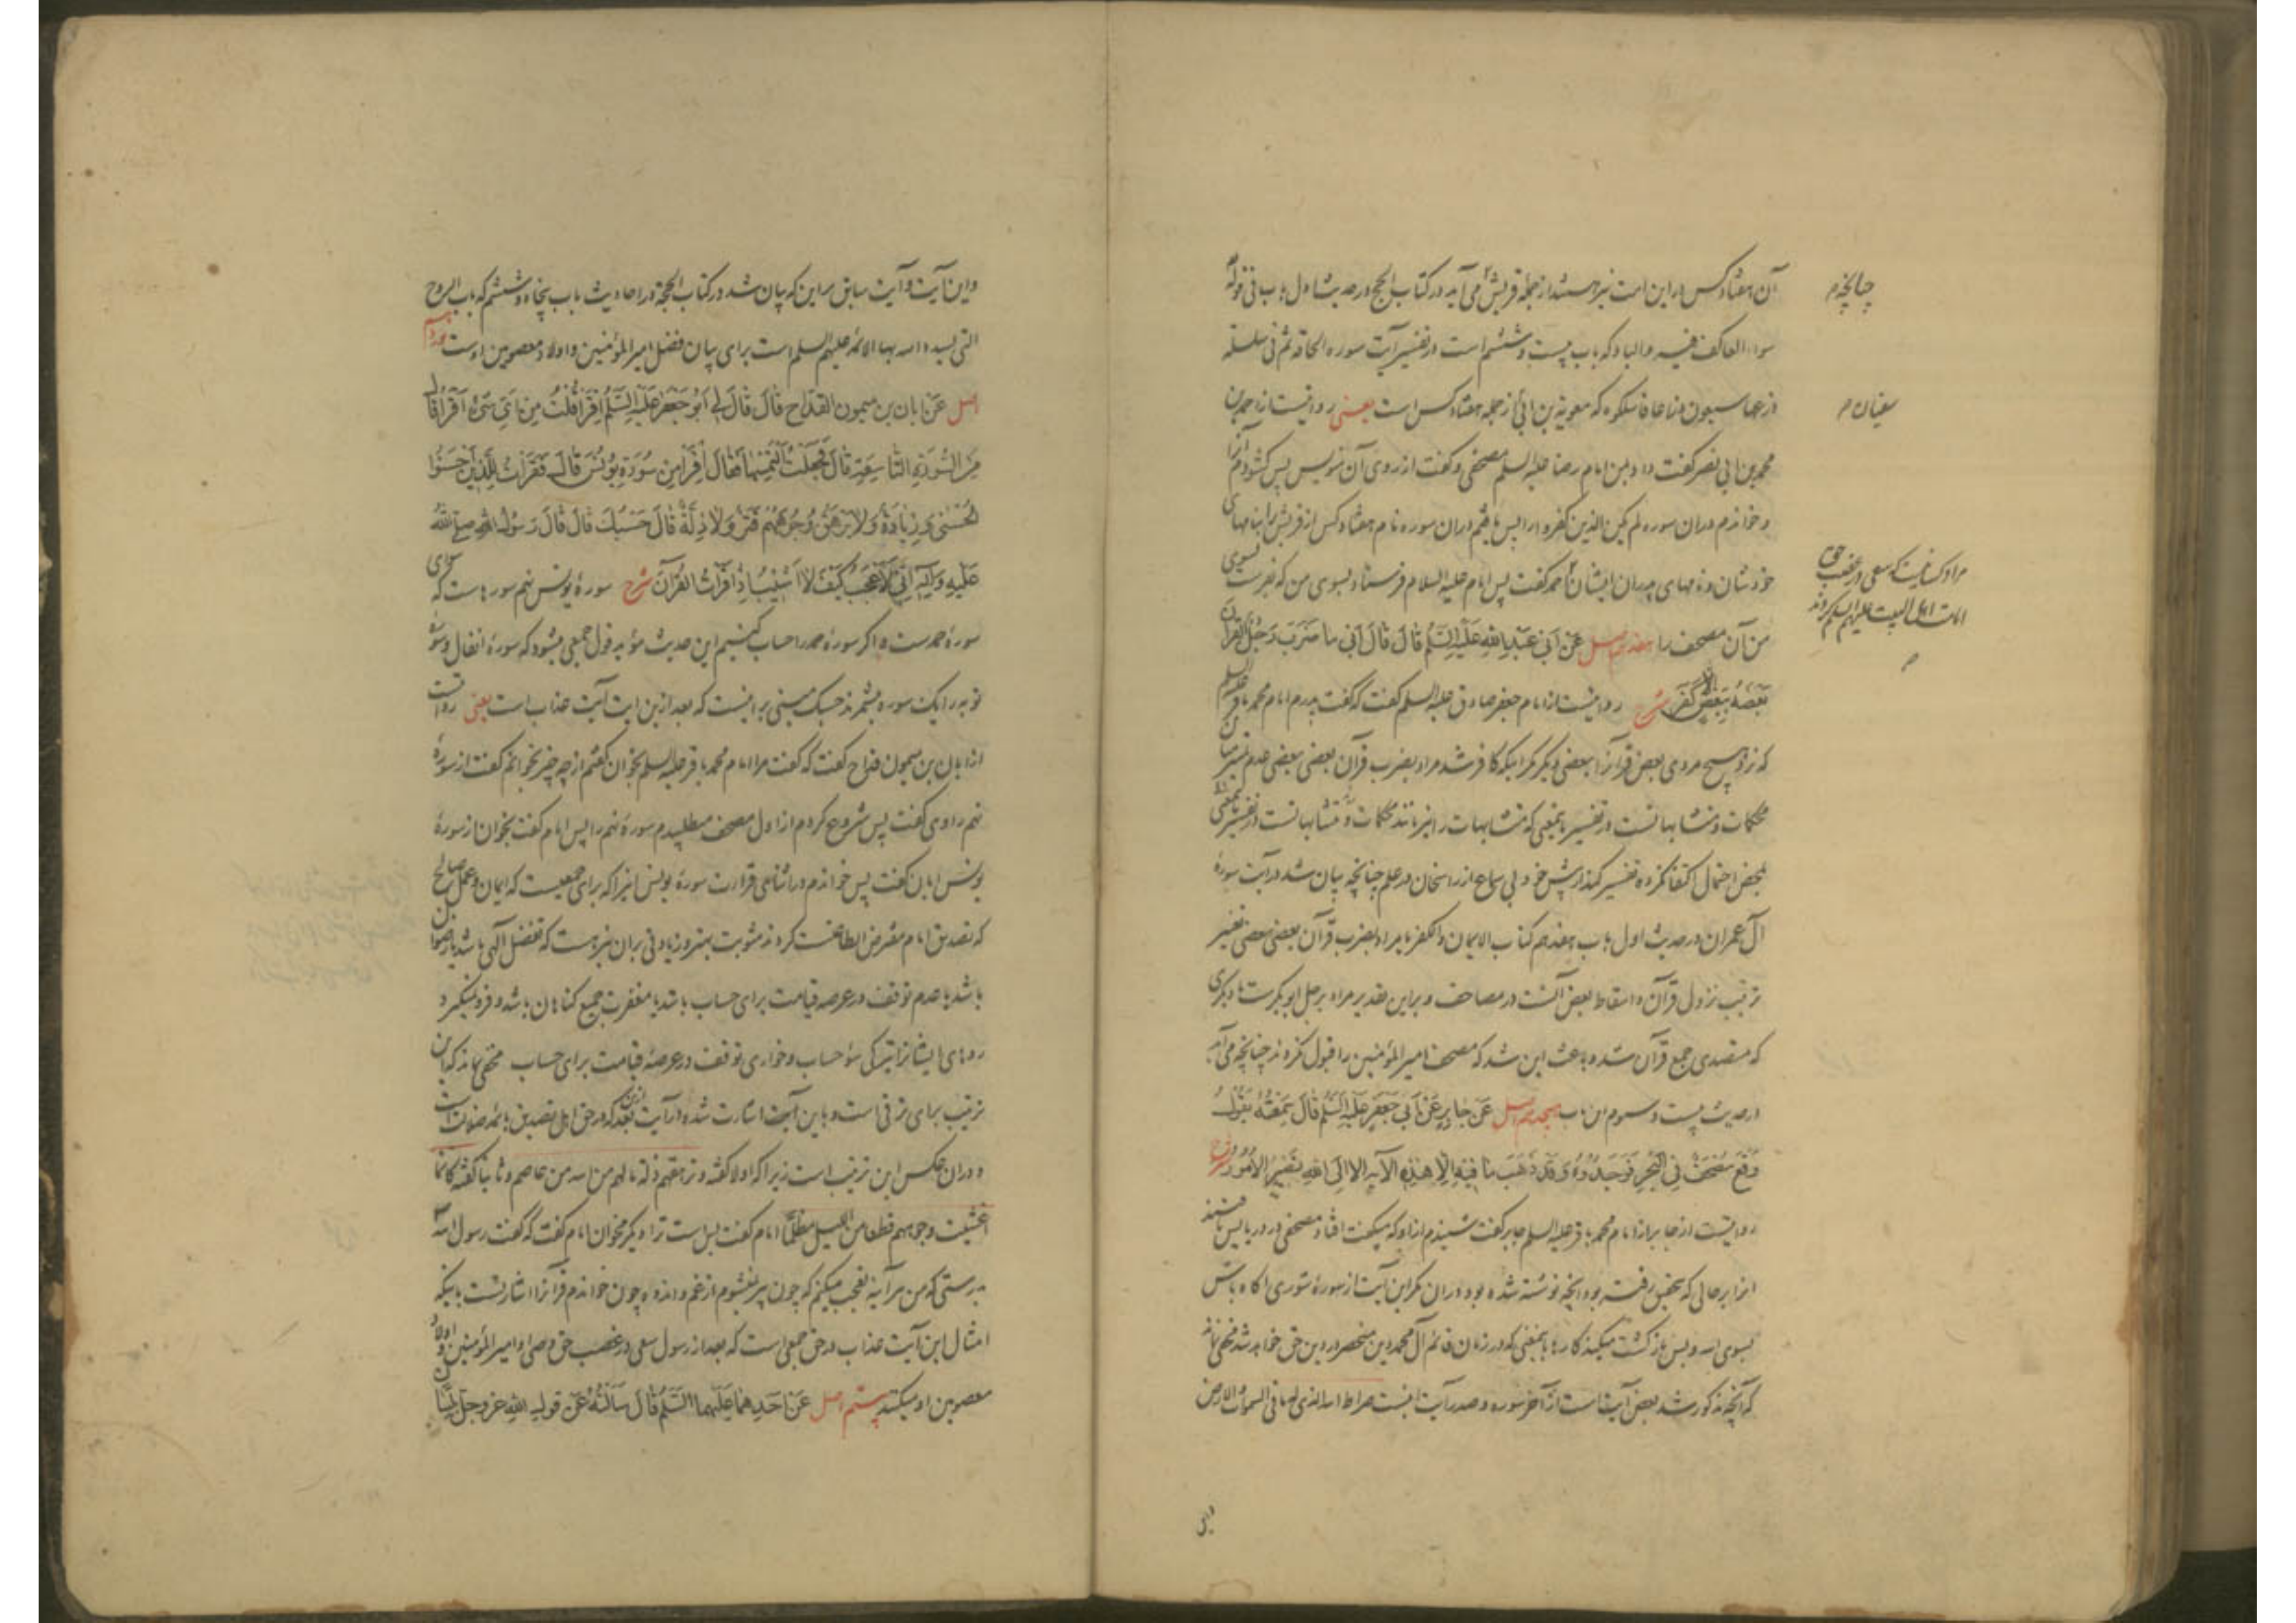 آن هفتاد کس در این امت نیز هستند از جمله قریش می آید در کتاب الحج در حدیث اول باب فی قوله
سواء العاکف فیه والباد که باب بیست و ششم است در تفسیر آیت سوره الحاقه ثم فی سلسلة
ذرعها سبعون ذراعا فاسلکوه که معویة بن ابی از جمله هفتاد کس است یعنی روایتست از احمد بن
محمد بن ابی نصر گفت داد بمن امام رضا علیه السلم مصحفی و گفت از روی آن منویس پس گشودم آنرا
و خواندم در آن سوره لم یکن الذین کفروا را پس یافتم در آن سوره نام هفتاد کس از قریش را بنامهای
خودشان و نامهای پدران ایشان احمد گفت پس امام علیه السلام فرستاد بسوی من که بفرست بسوی
من آن مصحف را هفدهم اصل عَن اَبی عَبدِ اللهِ عَلَیهِ السَّلَم قالَ قالَ اَبی ما ضَرَبَ رَجُلٌ القرآنَ
بَعضَهُ بِبَعضٍ اِلّا کَفَرَ شرح روایتست از امام جعفر صادق علیه السلم گفت که گفت پدرم امام محمد باقر علیه السلم
که نزد هیچ مردی بعض قرآنرا ببعضی دیگر مگر اینکه کافر شد مراد بضرب قرآن بعضی ببعضی عدم تمییز میان
محکمات و متشابهاتست در تفسیر باینمعنی که متشابهات را نیز مانند محکمات
بمحض احتمال اکتفا کرده تفسیر کند از پیش خود بی سماع از راسخان در علم چنانچه بیان شد در آیت سورهٔ
آل عمران در حدیث اول باب هفدهم کتاب الایمان والکفر یا مراد بضرب قرآن بعضی ببعضی تغییر
ترتیب نزول قرآن و اسقاط بعض آنست در مصاحف و براین تقدیر مراد برجل ابوبکرست یا دیگری
که متصدی جمع قرآن شده باعث این شد که مصحف امیرالمؤمنین را قبول نکردند چنانچه می آید
در حدیث بیست و سوم این باب هجدهم اصل عَن جابِرٍ عَن اَبی جَعفَرٍ عَلَیهِ السَّلَم قالَ سَمِعتُهُ یَقُولُ
وَقَعَ مُصحَفٌ فِی البَحرِ فَوَجَدُوهُ وَقَد ذَهَبَ ما فیهِ اِلّا هٰذِهِ الآیه الا اِلَی اللهِ تَصیرُ الاُمُورُ شرح
روایتست از جابر از امام محمد باقر علیه السلم جابر گفت شنیدم از او که میگفت افتاد مصحفی در دریا پس یافتند
انرا بر حالی که بتحقیق رفته بود انچه نوشته شده بود در آن مگر این آیت از سورهٔ شوری اگاه باش
بسوی الله و بس بازگشت میکند کارها باینمعنی که در زمان قائم آل محمد دین منحصر در دین حق خواهد شد مخفی نماند
که آنچه مذکور شد بعض آیتست از آخر سوره و صدر آیت اینست صراط الله الذی له ما فی السموات والارض
چنانچه م
سفیان م
مراد کسانیست که سعی در غصب حق
امامت اهل البیت علیهم السلم کردند
م
واین
واین آیت و آیت سابق بر این که بیان شد در کتاب الحجة در احادیث باب پنجاه و ششم که باب الروح
التی یسدد الله بها الائمه علیهم السلم است برای بیان فضل امیرالمؤمنین و اولاد معصومین اوست نوزدهم
اصل عَن اَبان بن میمون القدّاح قالَ قالَ لی اَبُو جَعفَرٍ عَلَیهِ السَّلَم اِقرَأ قُلتُ مِن اَیِّ شَیءٍ اَقرَأُ قالَ
مِنَ السُّورَةِ التّاسِعَةِ قالَ فَجَعَلتُ اَلتَمِسُها فَقالَ اِقرَأ مِن سُورَةِ یُونُسَ قالَ فَقَرَأتُ لِلَّذینَ اَحسَنُوا
الحُسنی وَ زِیادَةٌ وَلا یَرهَقُ وُجُوهَهُم قَتَرٌ وَلا ذِلَّةٌ قالَ حَسبُکَ قالَ قالَ رَسُولُ اللهِ صلی الله
عَلَیهِ وَآلِهِ اِنّی لَاَعجَبُ کَیفَ لا اَشیبُ اِذا قَرَأتُ القُرآنَ شرح سورهٔ یونس نهم سورهاست که سوای
سورهٔ حمدست و اگر سورهٔ حمد را حساب کنیم این حدیث مؤید قول جمعی میشود که سورهٔ انفال و سورهٔ
توبه را یک سوره میشمرند حسبک مبنی بر اینست که بعد از این ایت آیت عذاب است یعنی روایتست
از ابان بن میمون قداح گفت که گفت مرا امام محمد باقر علیه السلم بخوان گفتم از چه چیز بخوانم گفت از سورهٔ
نهم راوی گفت پس شروع کردم از اول مصحف میطلبیدم سورهٔ نهم را پس امام گفت بخوان از سورهٔ
یونس ابان گفت پس خواندم در اثنای قراءت سورهٔ یونس اینرا که برای جمعیست که ایمان و عمل صالح
که تصدیق امام مفترض الطاعتست کردند مثوبت بهتر و زیادتی بران نیز هست که تفضل الهی باشد یا رضوان
باشد یا عدم توقف در عرصه قیامت برای حساب باشد یا مغفرت جمیع گناهان باشد و فرو نمیگیرد
روهای ایشانرا تیرگی سؤ حساب و خواری توقف در عرصهٔ قیامت برای حساب مخفی نماند که این
ترتیب برای ترقی است و باین آیت اشارت شده در آیت بعد ازین که در حق اهل تصدیق بائمه ضلالت است
و در ان عکس این ترتیب است زیرا که اولا گفته و ترهقهم ذلة ما لهم من الله من عاصم و ثانیا گفته کانما
اغشیت وجوههم قطعا من اللیل مظلما امام گفت بس است ترا دیگر مخوان امام گفت که گفت رسول الله
بدرستی که من هر آینه تعجب میکنم که چون پیر نمیشوم از غم و اندوه چون خواندم قرآنرا اشارتست باینکه
امثال این آیت عذاب در حق جمعی است که بعد از رسول سعی در غصب حق وصی او امیرالمؤمنین و اولاد
معصومین او میکنند بیستم اصل عَن اَحَدِهِما عَلَیهِما السَّلَم قالَ سَاَلتُهُ عَن قولِ اللهِ عز وجل بلسان